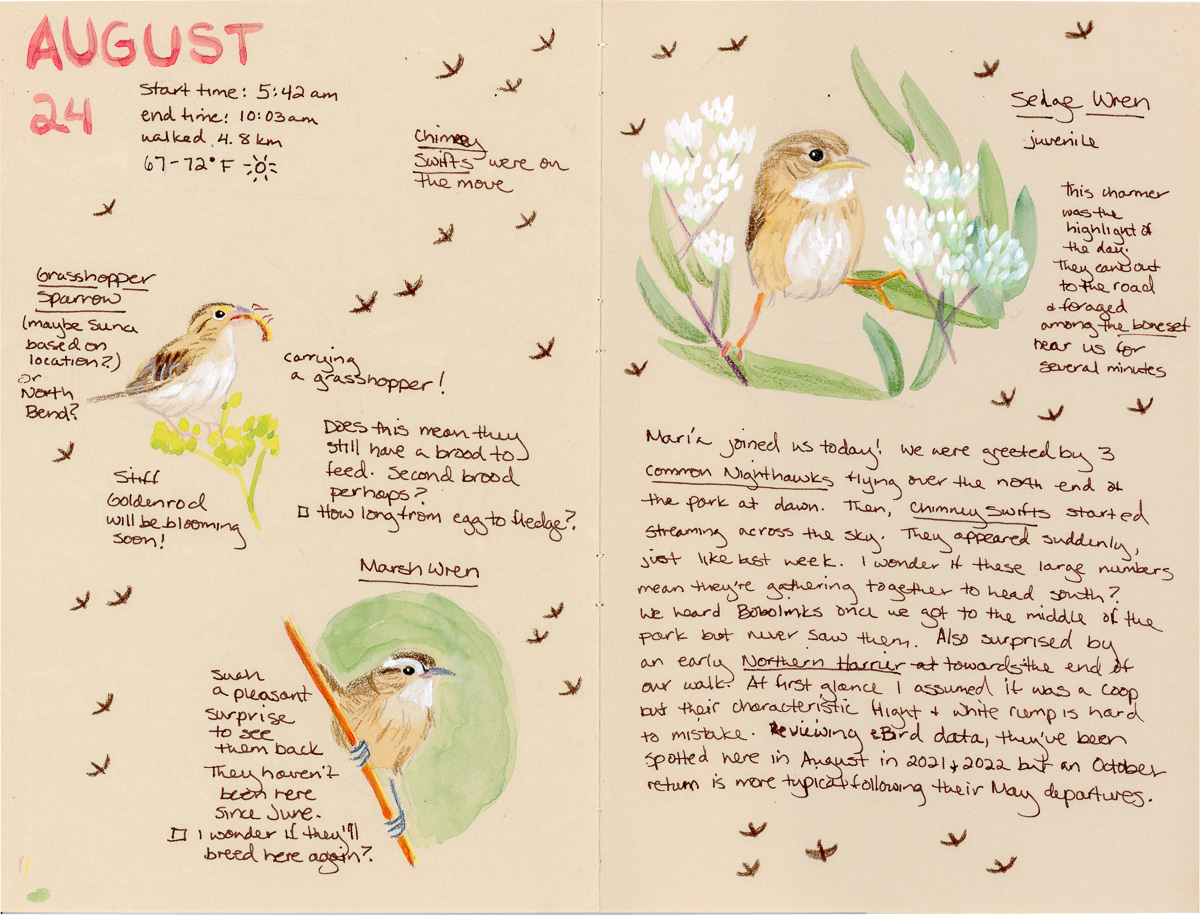 AUGUST
24
start time: 5:42 am
end time: 10:03 am
walked 4.8 km
67-72°F
Chimney
Swifts were on
the move
Grasshopper
Sparrow
(maybe
based on
location?)
or
North
Bend?
carrying
a grasshopper!
Does this mean they
still have a brood to
feed. Second brood
perhaps?
□ How long from egg to fledge?
Stiff
Goldenrod
will be blooming
soon!
Marsh Wren
such
a pleasant
surprise
to see
them back
They haven't
been here
since June.
□ I wonder if they'll
breed here again?
Sedge Wren
juvenile
This charmer
was the
highlight of
the day.
They came out
to the road
& foraged
among the boneset
near us for
several minutes
joined us today! We were greeted by 3
Common Nighthawks flying over the north end of
the park at dawn. Then, Chimney Swifts started
streaming across the sky. They appeared suddenly,
just like last week. I wonder if these large numbers
mean they're gathering together to head south?
We heard Bobolinks once we got to the middle of the
park but never saw them. Also surprised by
an early Northern Harrier at towards the end of
our walk. At first glance I assumed it was a coop
but their characteristic flight + white rump is hard
to mistake. Reviewing eBird data, they've been
spotted here in August in 2021 + 2022 but an October
return is more typical following their May departures.